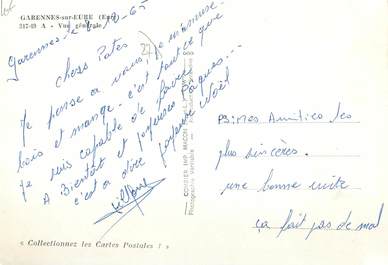 GARENNES-sur-EURE (Eure)
217-49 A - Vue générale
Garennes le
65
Chers Potes
Je pense a vous, je m'amuse.
bois et mange. c'est tout ce que
je suis capable de faire
A Bientôt et joyeuses Pâques...
c'est a dire joyeux Noël
COMBIER IMP. MACON
PS: Mes Amitiés les
plus sincères.
une bonne cuite
ça fait pas de mal
« Collectionnez les Cartes Postales ! »